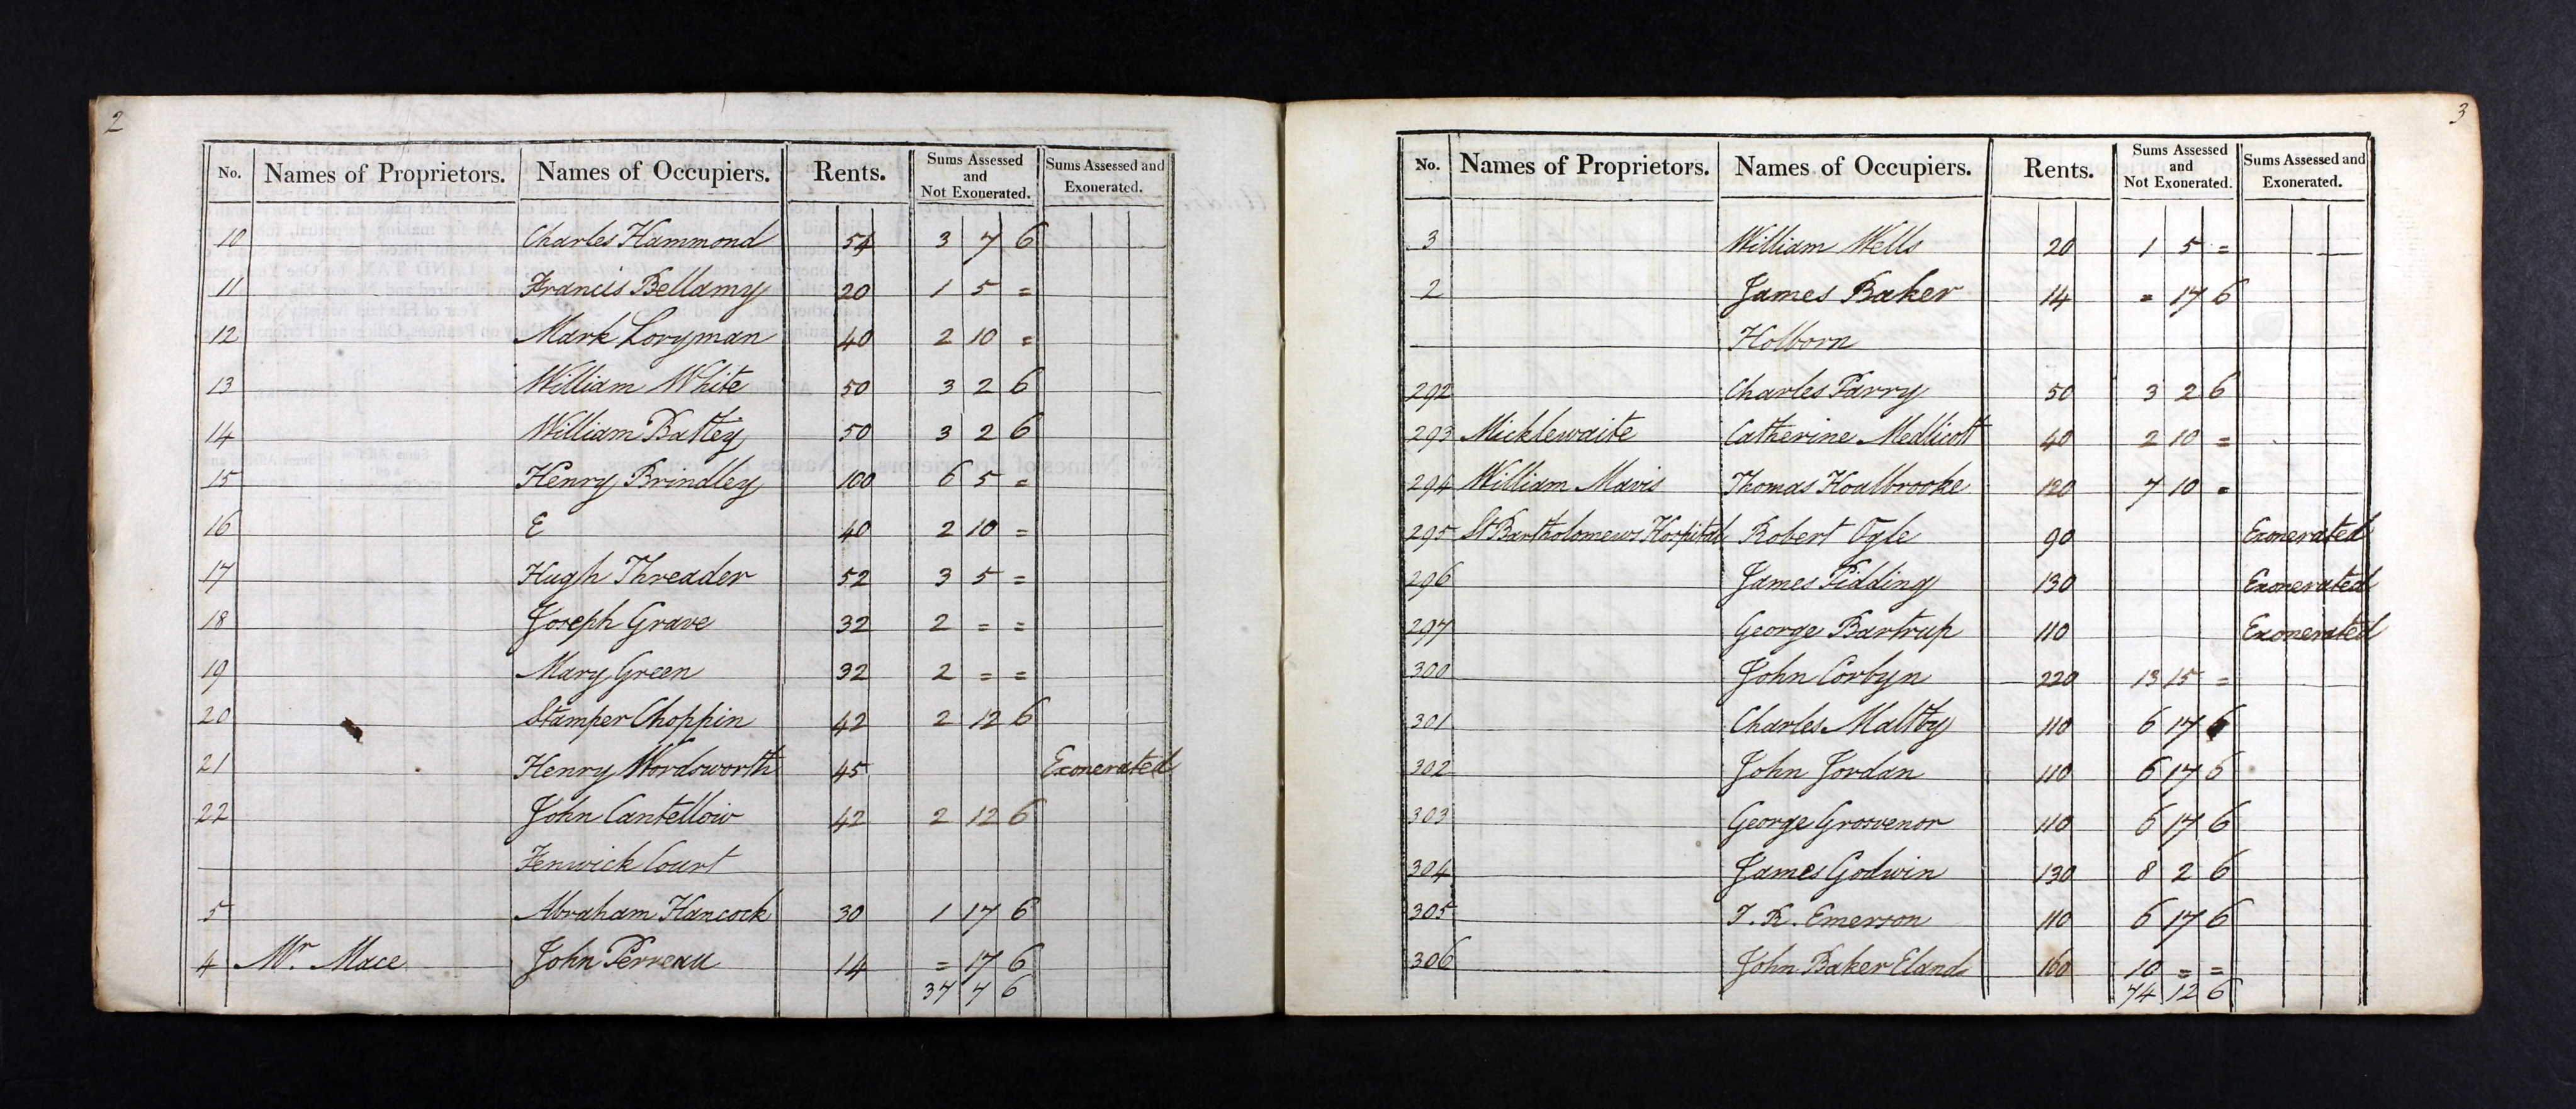 2
No. Names of Proprietors. Names of Occupiers. Rents. Sums Assessed and Not Exonerated. Sums Assessed and Exonerated.
10 Charles Hammond 54 3 7 6
11 Francis Bellamy 20 1 5 =
12 Mark Loryman 40 2 10 =
13 William White 50 3 2 6
14 William Battey 50 3 2 6
15 Henry Brindley 100 6 5 =
16 E 40 2 10 =
17 Hugh Threader 52 3 5 =
18 Joseph Grave 32 2 = =
19 Mary Green 32 2 = =
20 Stamper Choppin 42 2 12 6
21 Henry Wordsworth 45 Exonerated
22 John Cantellow 42 2 12 6
Fenwick Court
5 Abraham Hancock 30 1 17 6
4 Mr. Mace John Perreau 14 = 17 6
37 7 6
3
No. Names of Proprietors. Names of Occupiers. Rents. Sums Assessed and Not Exonerated. Sums Assessed and Exonerated.
3 William Wells 20 1 5 =
2 James Baker 14 = 17 6
Holborn
292 Charles Parry 50 3 2 6
293 Micklewaite Catherine Medlicott 40 2 10 =
294 William Mavis Thomas Hoalbrooke 120 7 10 =
295 St Bartholomews Hospital Robert Ogle 90 Exonerated
296 James Pidding 130 Exonerated
297 George Bartrup 110 Exonerated
300 John Corbyn 220 13 15 =
301 Charles Maltby 110 6 17 6
302 John Jordan 110 6 17 6
303 George Grosvenor 110 6 17 6
304 James Godwin 130 8 2 6
305 T. R. Emerson 110 6 17 6
306 John Baker Eland 160 10 = =
74 12 6